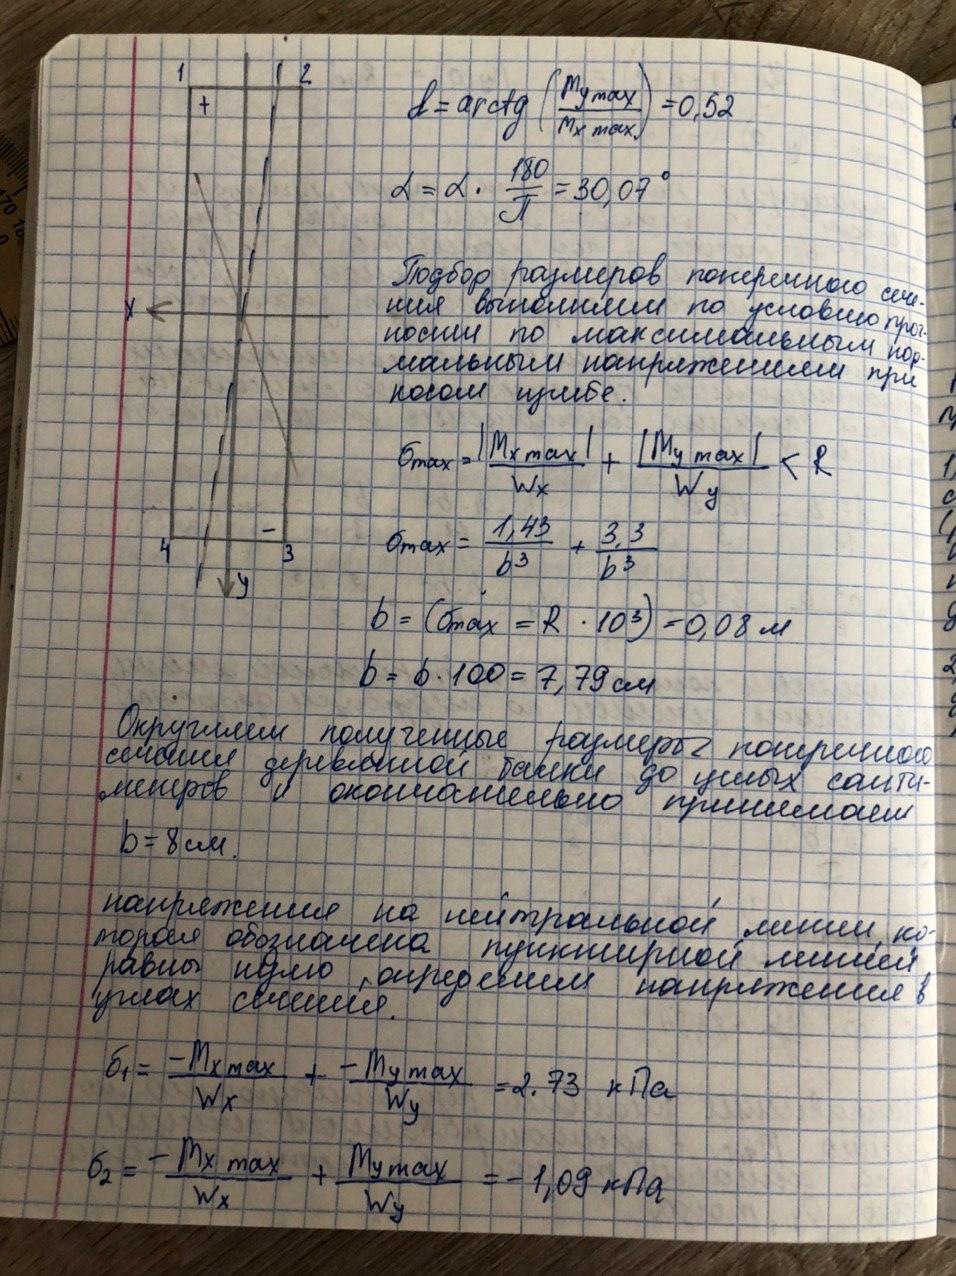 1
2
+
α = arctg (My max / Mx max) = 0,52
α = α · 180/π = 30,07°
x
Подбор размеров поперечного сече-
ния выполняем по условию проч-
ности по максимальным нор-
мальным напряжением при
косом изгибе.
σmax = |Mx max| / Wx + |My max| / Wy < R
4
-
3
y
σmax = 1,43 / b³ + 3,3 / b³
b = (σmax = R · 10³) = 0,08 м
b = b · 100 = 7,79 см
Округляем полученные размеры поперечного
сечения деревянной балки до целых санти-
метров и окончательно принимаем
b = 8 см.
напряжения на нейтральной линии, ко-
торая обозначена пунктирной линией
равны нулю, определим напряжения в
углах сечения.
σ1 = -Mx max / Wx + -My max / Wy = 2.73 кПа
σ2 = -Mx max / Wx + My max / Wy = -1,09 кПа